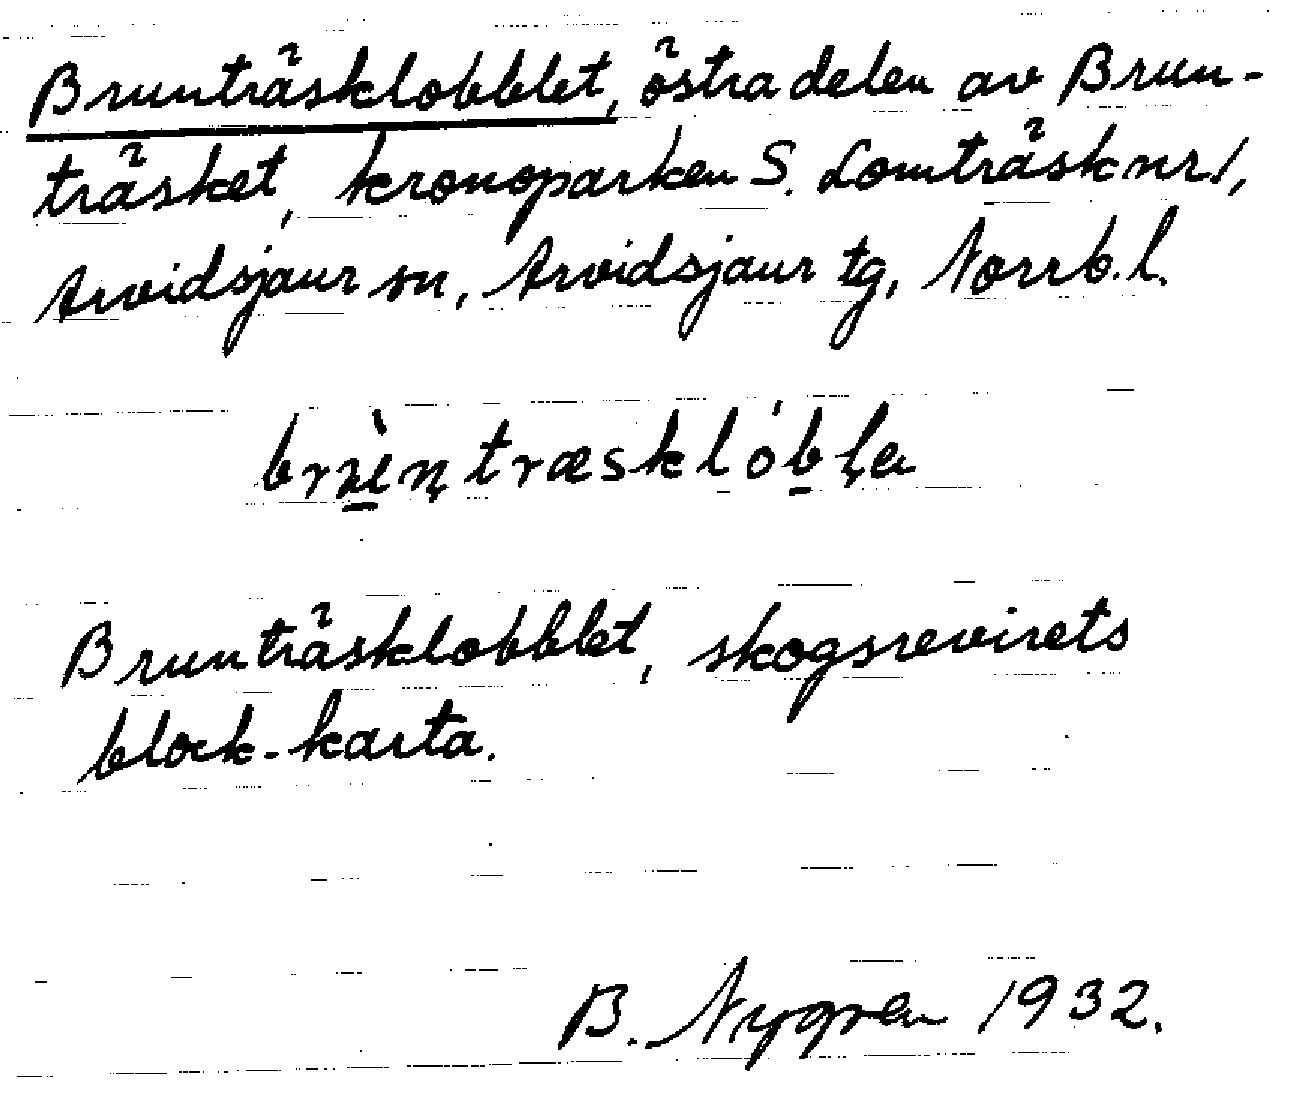 Brunträsklobblet, östra delen av Brun-
träsket, kronoparken S. Lomträsk nr 1,
Arvidsjaur sn, Arvidsjaur tg, Norrb. l.
Brunträsklobblet, skogsrevirets
block-karta.
B. Nygren 1932.